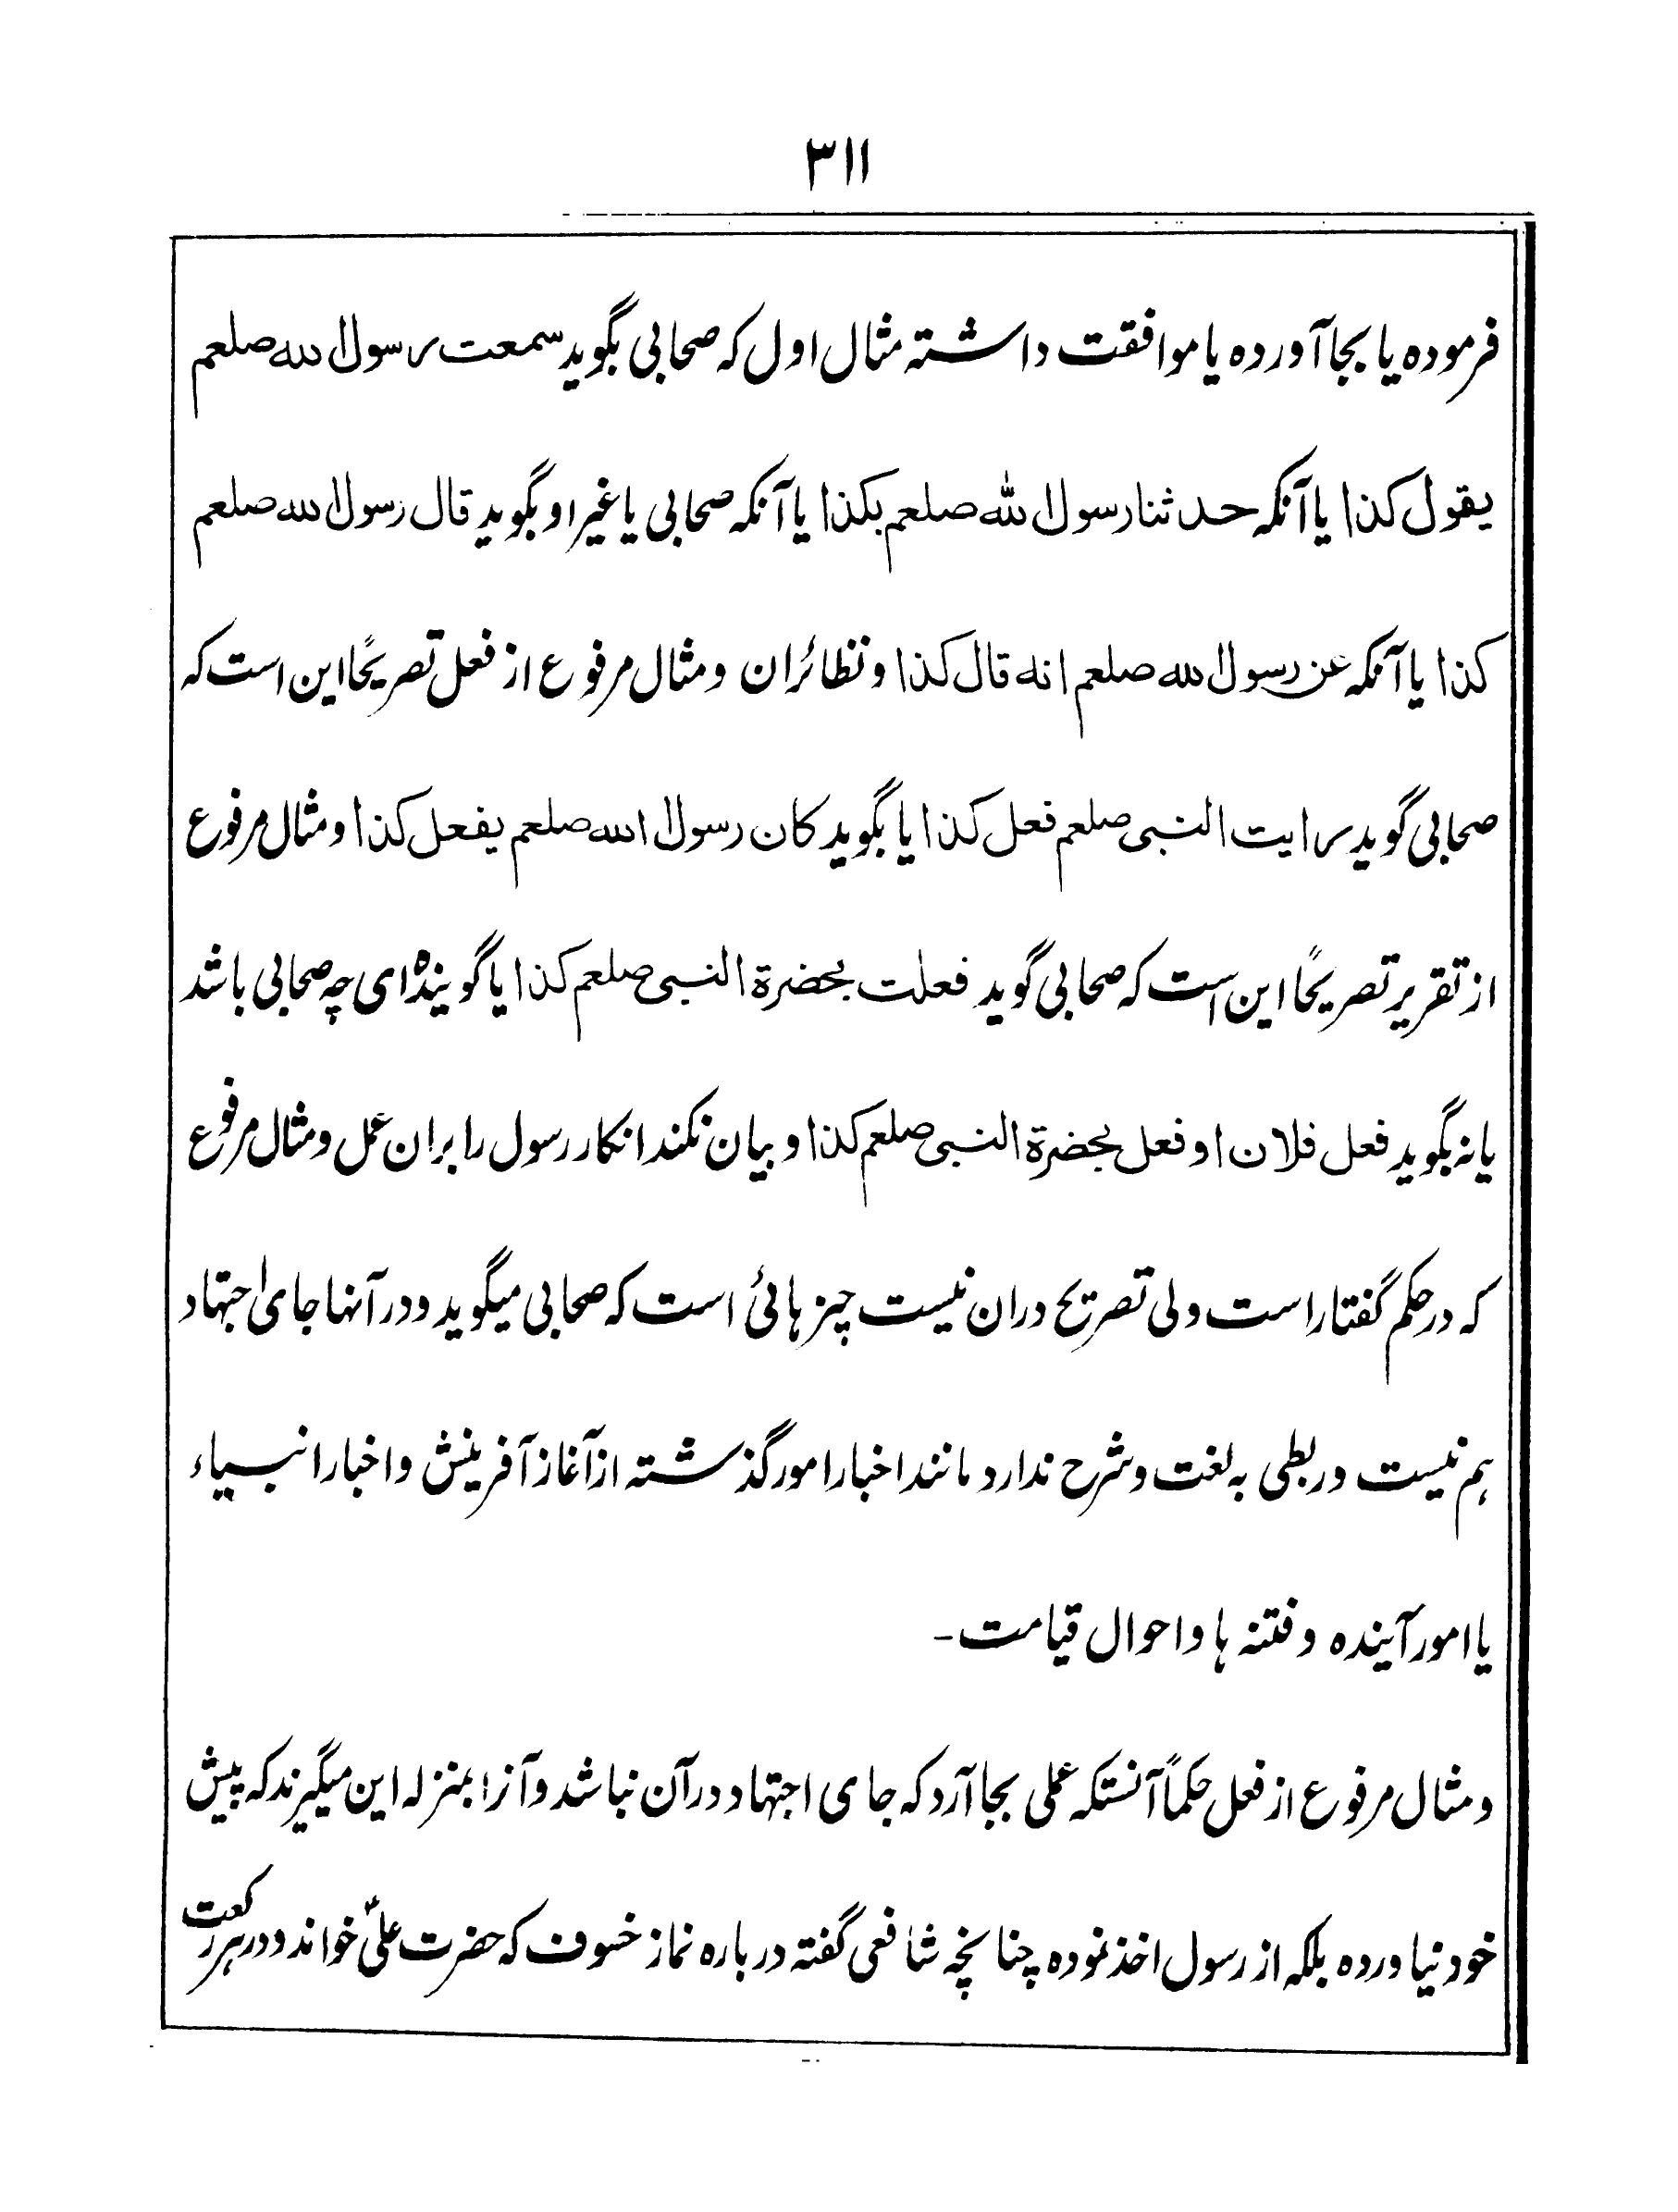 ۳۱۱
فرموده یا بجا آورده یا موافقت داشته مثال اول که صحابی بگوید سمعت رسول الله صلعم
یقول کذا یا آنکه حدثنا رسول الله صلعم بکذا یا آنکه صحابی یا غیر او بگوید قال رسول الله صلعم
کذا یا آنکه عن رسول الله صلعم انه قال کذا و نظائران و مثال مرفوع از فعل تصریحًا این است که
صحابی گوید رایت النبی صلعم فعل کذا یا بگوید کان رسول الله صلعم یفعل کذا و مثال مرفوع
از تقریر تصریحًا این است که صحابی گوید فعلت بحضرة النبی صلعم کذا یا گوینده‌ای چه صحابی باشد
یا نه بگوید فعل فلان او فعل بحضرة النبی صلعم کذا و بیان نکند انکار رسول را بران عمل و مثال مرفوع
که در حکم گفتار است ولی تصریح دران نیست چیزهائی است که صحابی میگوید و در آنها جای اجتهاد
هم نیست و ربطی به لغت و شرح ندارد مانند اخبار امور گذشته از آغاز آفرینش و اخبار انبیاء
یا امور آینده و فتنه ها و احوال قیامت -
و مثال مرفوع از فعل حکماً آنستکه عملی بجا آرد که جای اجتهاد در آن نباشد و آنرا بمنزله این میگیرند که پیش
خود نیاورده بلکه از رسول اخذ نموده چنانچه شافعی گفته در باره نماز خسوف که حضرت علیؓ خواند و در هر رکعت